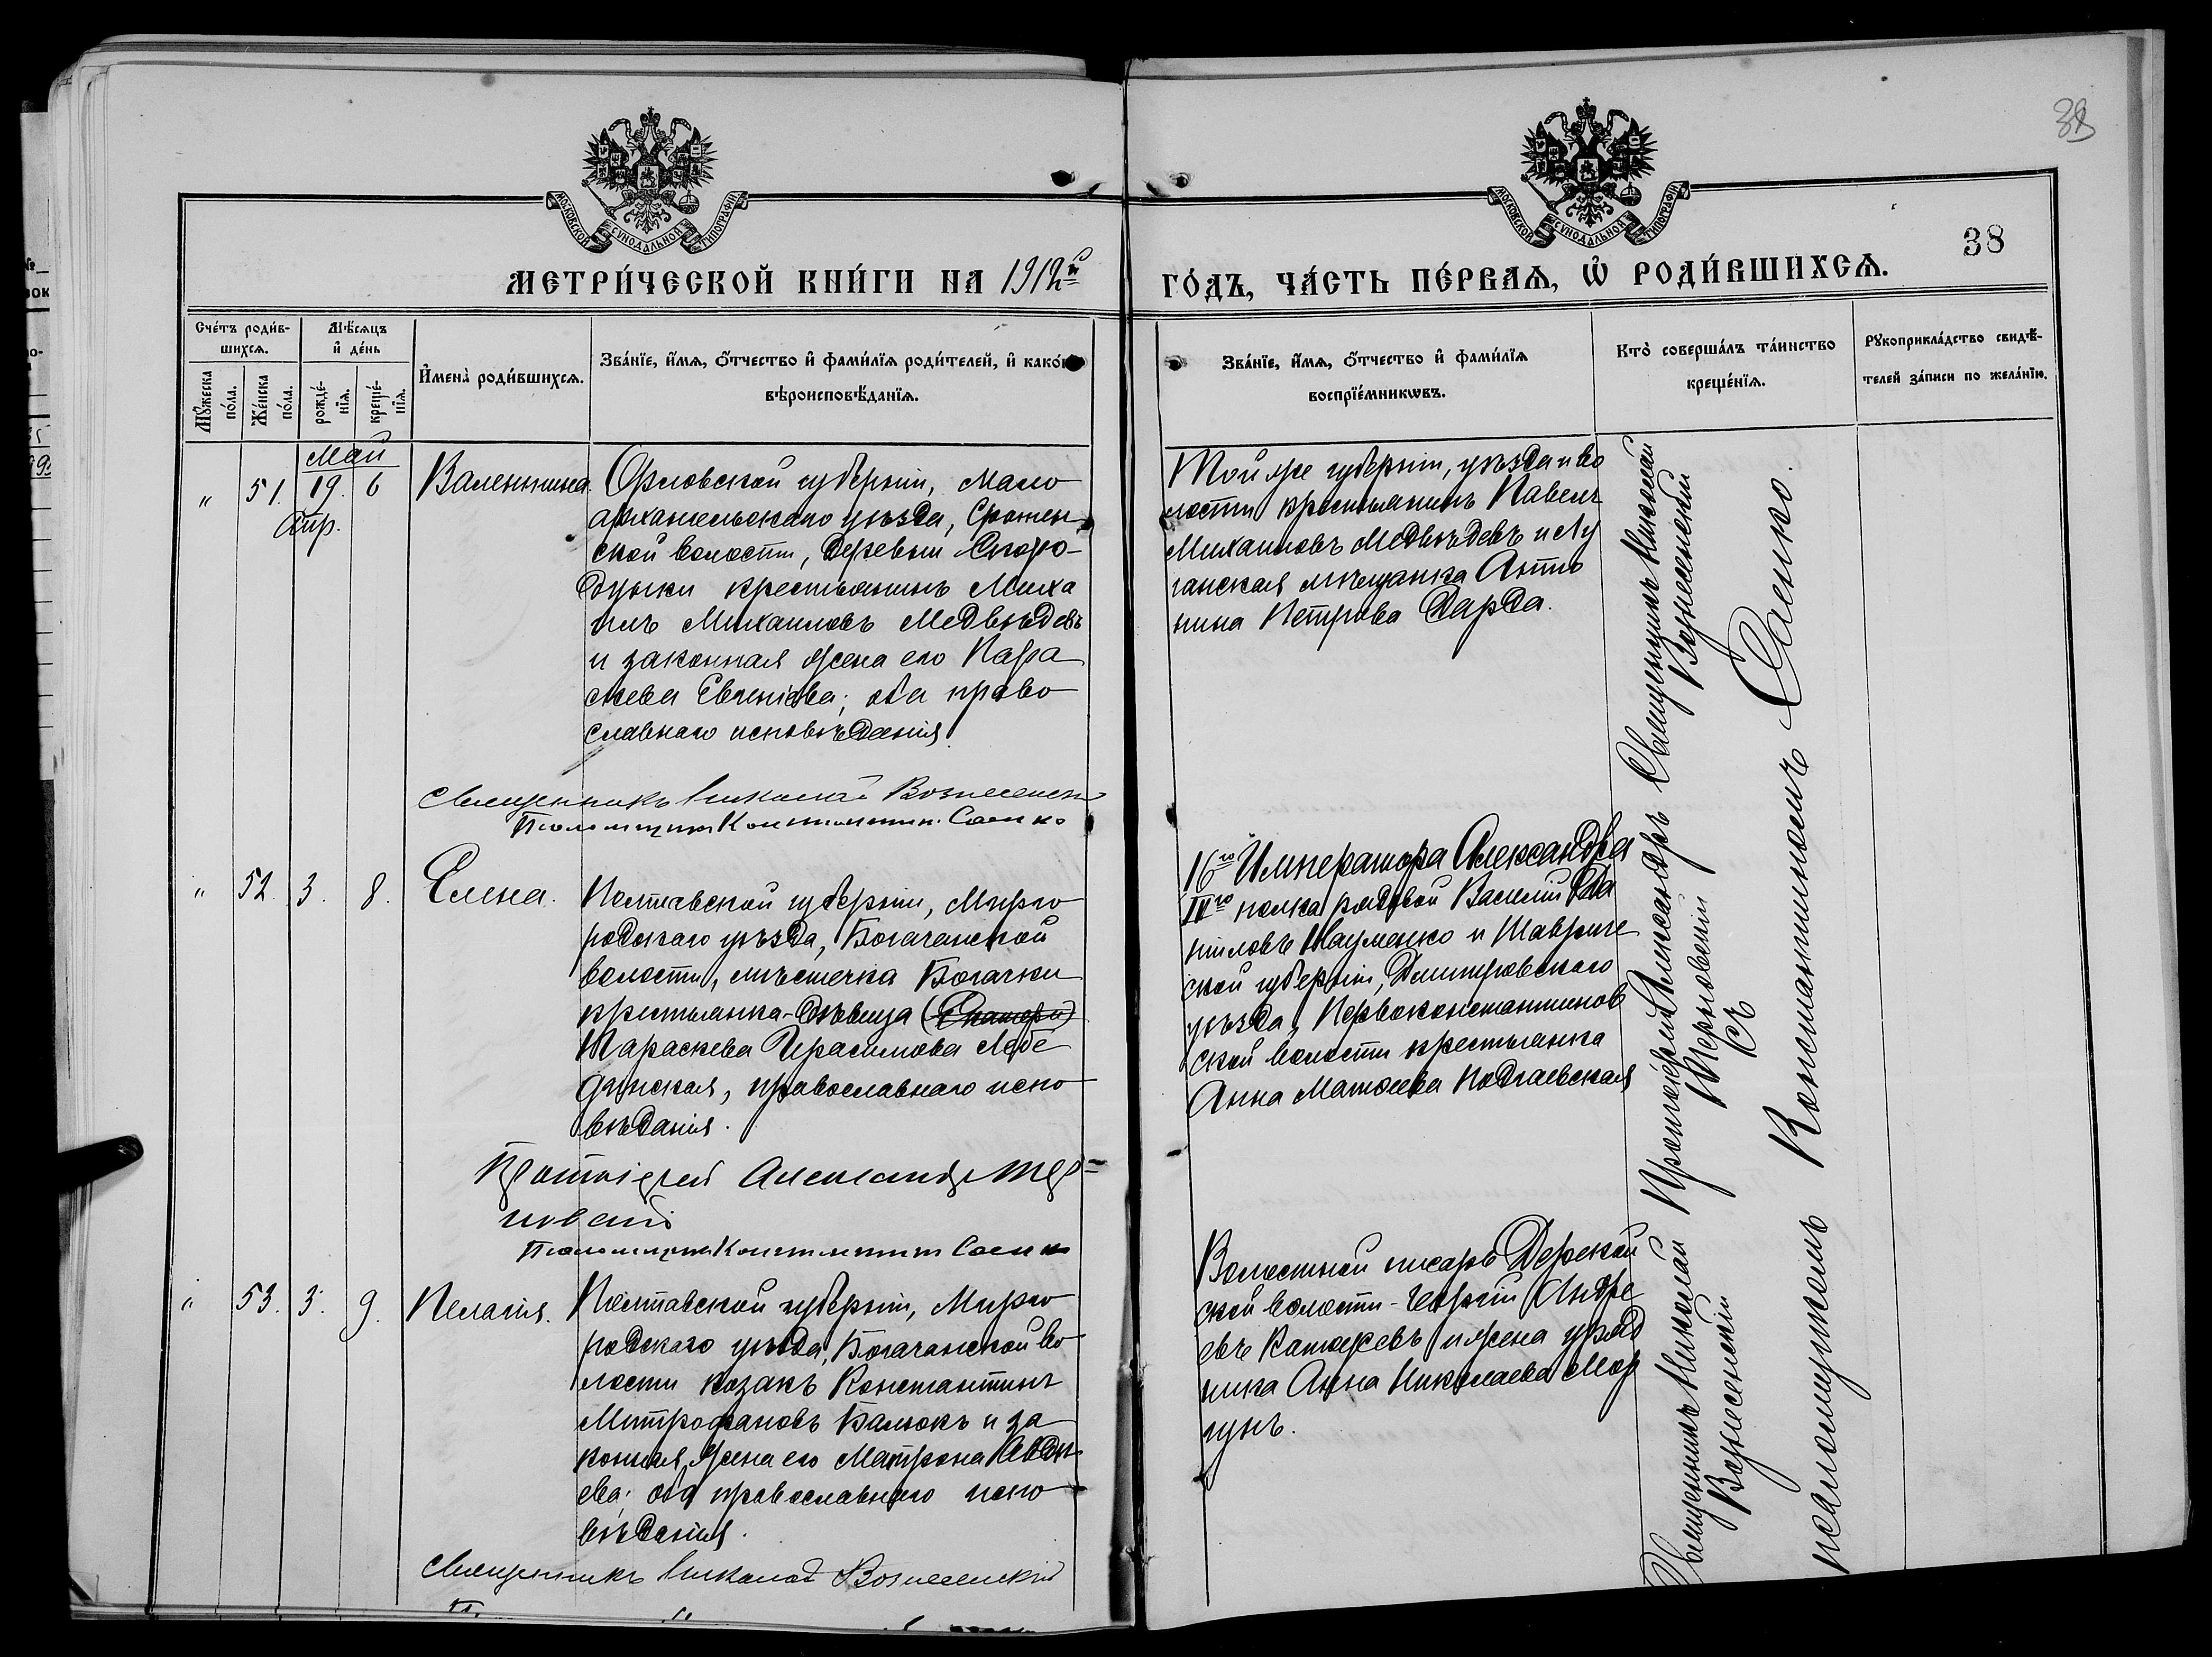 38
38
МОСКОВСКОЙ СѴНОДАЛЬНОЙ ТИПОГРАФІИ
МОСКОВСКОЙ СѴНОДАЛЬНОЙ ТИПОГРАФІИ
МЕТРИ́ЧЕСКОЙ КНИ́ГИ НА 1912й
ГО́ДЪ, ЧА́СТЬ ПЕ́РВАЯ, Ѡ РОДИ́ВШИХСЯ.
Сче́тъ роди́в-
шихся.
Мѣ́сяцъ
и де́нь
Му́жеска
по́ла.
Же́нска
по́ла.
рожде́-
нїя.
креще́-
нїя.
Имена̀ роди́вшихся.
Зва́нїе, и́мя, о́тчество и фами́лїя роди́телей, и како́го
вѣроисповѣ́данїя.
Зва́нїе, и́мя, о́тчество и фами́лїя
воспрїе́мникѡвъ.
Кто̀ соверша́лъ та́инство
креще́нїя.
Рукоприкла́дство свидѣ́-
телей за́писи по жела́нїю.
Май
" 51. 19. 6 Валентина.
Апр.
Орловской губерніи, Мало
архангельскаго уѣзда,
ской волости, деревни Скоро-
думки крестьянинъ Миха
илъ Михаиловъ Медвѣдевъ
и законная жена его Пара
скева Евгеніева; оба право
славнаго исповѣданія.
Священникъ Николай Вознесенскій
Псаломщикъ Константинъ Саенко
Той же губерніи, уѣзда и во
лости крестьянинъ Павелъ
Михаиловъ Медвѣдевъ и Лу
ганская мѣщанка Анто
нина Петрова Дарда.
Священникъ Николай
Вознесенскій
" 52. 3. 8. Елена.
Полтавской губерніи, Мирго
родскаго уѣзда, Богачанской
волости, мѣстечка Богачки
крестьянка-дѣвица (Екатери)
Параскева Герасимова Лебе
динская, православнаго испо
вѣданія.
Протоіерей Александръ Тер=
новскій
Псаломщикъ Константинъ Саенко
16го Императора Александра
IIIго полка рядовой Василій Да
ниловъ Науменко и Тавриче
ской губерніи, Днѣпровскаго
уѣзда, Первоконстантинов
ской волости крестьянка
Анна Матѳеева Подгаевская
Протоіерей Александръ
Терновскій
съ
" 53. 3. 9. Пелагія.
Полтавской губерніи, Мирго
родскаго уѣзда, Богачанской во
лости козакъ Константинъ
Митрофановъ Балюкъ и за
конная жена его Матрона Авдѣ
ева; оба православнаго испо
вѣданія.
Священникъ Николай Вознесенскій
Волостной писарь
ской волости - Георгій Андре
евъ и жена уряд
ника Анна Николаева Мор
гунъ.
Священникъ Николай
Вознесенскій
псаломщикомъ Константиномъ Саенко.